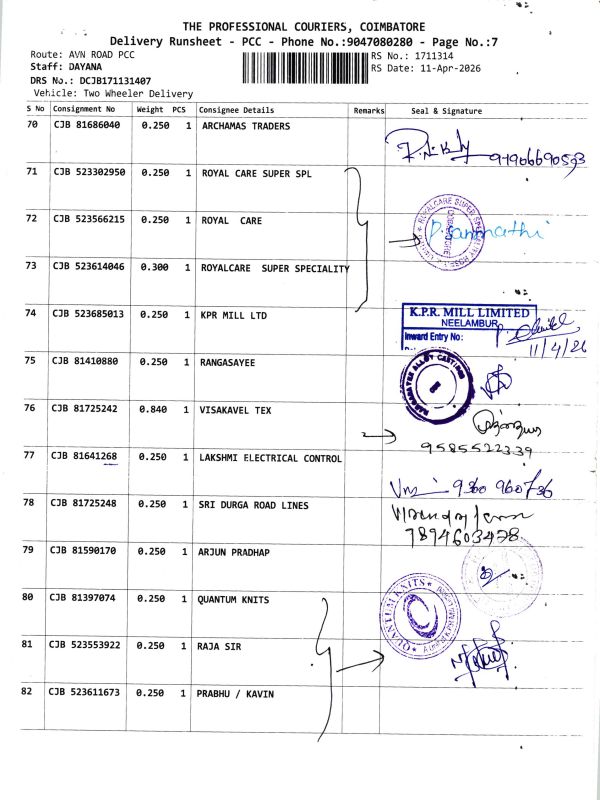 THE PROFESSIONAL COURIERS, COIMBATORE
Delivery Runsheet - PCC - Phone No.:9047080280 - Page No.:7
Route: AVN ROAD PCC
RS No.: 1711314
Staff: DAYANA
RS Date: 11-Apr-2026
DRS No.: DCJB171131407
Vehicle: Two Wheeler Delivery
S No Consignment No Weight PCS Consignee Details Remarks Seal & Signature
70 CJB 81686040 0.250 1 ARCHAMAS TRADERS
71 CJB 523302950 0.250 1 ROYAL CARE SUPER SPL
72 CJB 523566215 0.250 1 ROYAL CARE
73 CJB 523614046 0.300 1 ROYALCARE SUPER SPECIALITY
74 CJB 523685013 0.250 1 KPR MILL LTD
K.P.R. MILL LIMITED
NEELAMBUR
Inward Entry No:
11/4/26
75 CJB 81410880 0.250 1 RANGASAYEE
76 CJB 81725242 0.840 1 VISAKAVEL TEX
9585522339
77 CJB 81641268 0.250 1 LAKSHMI ELECTRICAL CONTROL
78 CJB 81725248 0.250 1 SRI DURGA ROAD LINES
7894603478
79 CJB 81590170 0.250 1 ARJUN PRADHAP
80 CJB 81397074 0.250 1 QUANTUM KNITS
QUANTUM KNITS
81 CJB 523553922 0.250 1 RAJA SIR
82 CJB 523611673 0.250 1 PRABHU / KAVIN